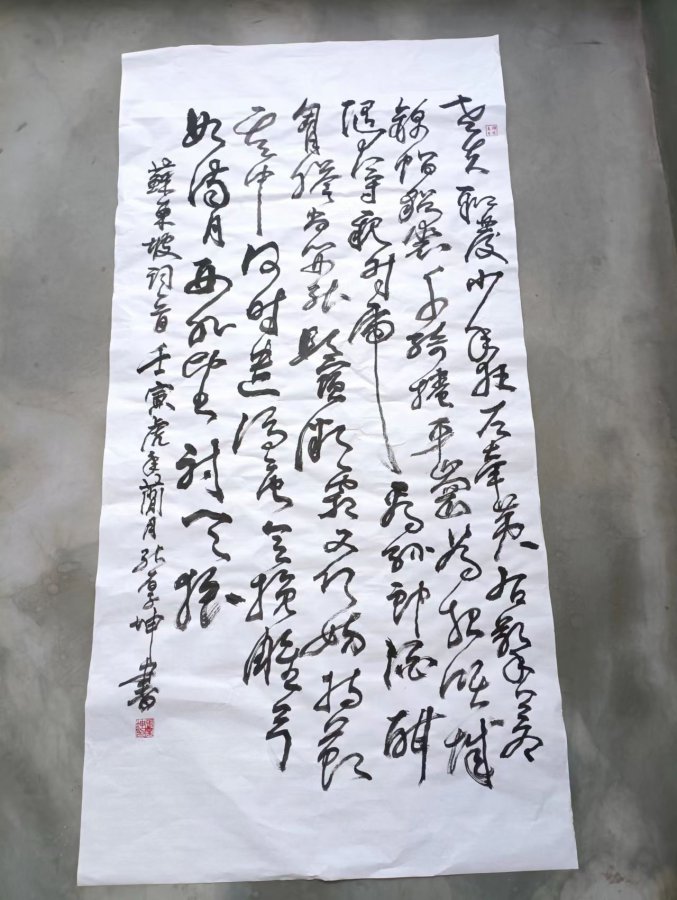 老夫聊發少年狂左牽黃右擎蒼
錦帽貂裘千騎捲平岡為報傾城
隨太守親射虎看孫郎酒酣
胸膽尚開張鬢微霜又何妨持節
雲中何時遣馮唐會挽雕弓
如滿月西北望射天狼
蘇東坡詞首壬寅虎年蘭月張草坤書